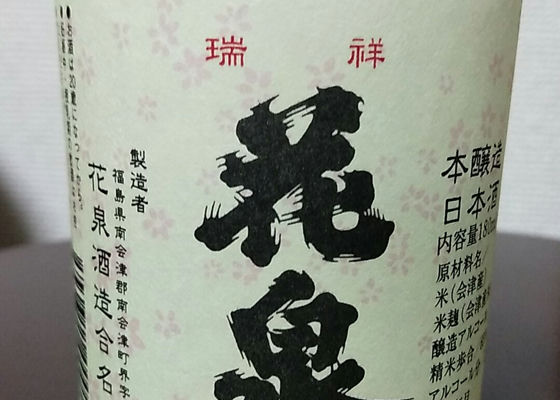 瑞祥
花泉
本醸造
日本酒
内容量180
原材料名
米(会津産)
米麹(会津産
醸造アルコー
精米歩合
アルコール分
製造者
福島県南会津郡南会津町界字
花泉酒造合名
●お酒は20歳になってから